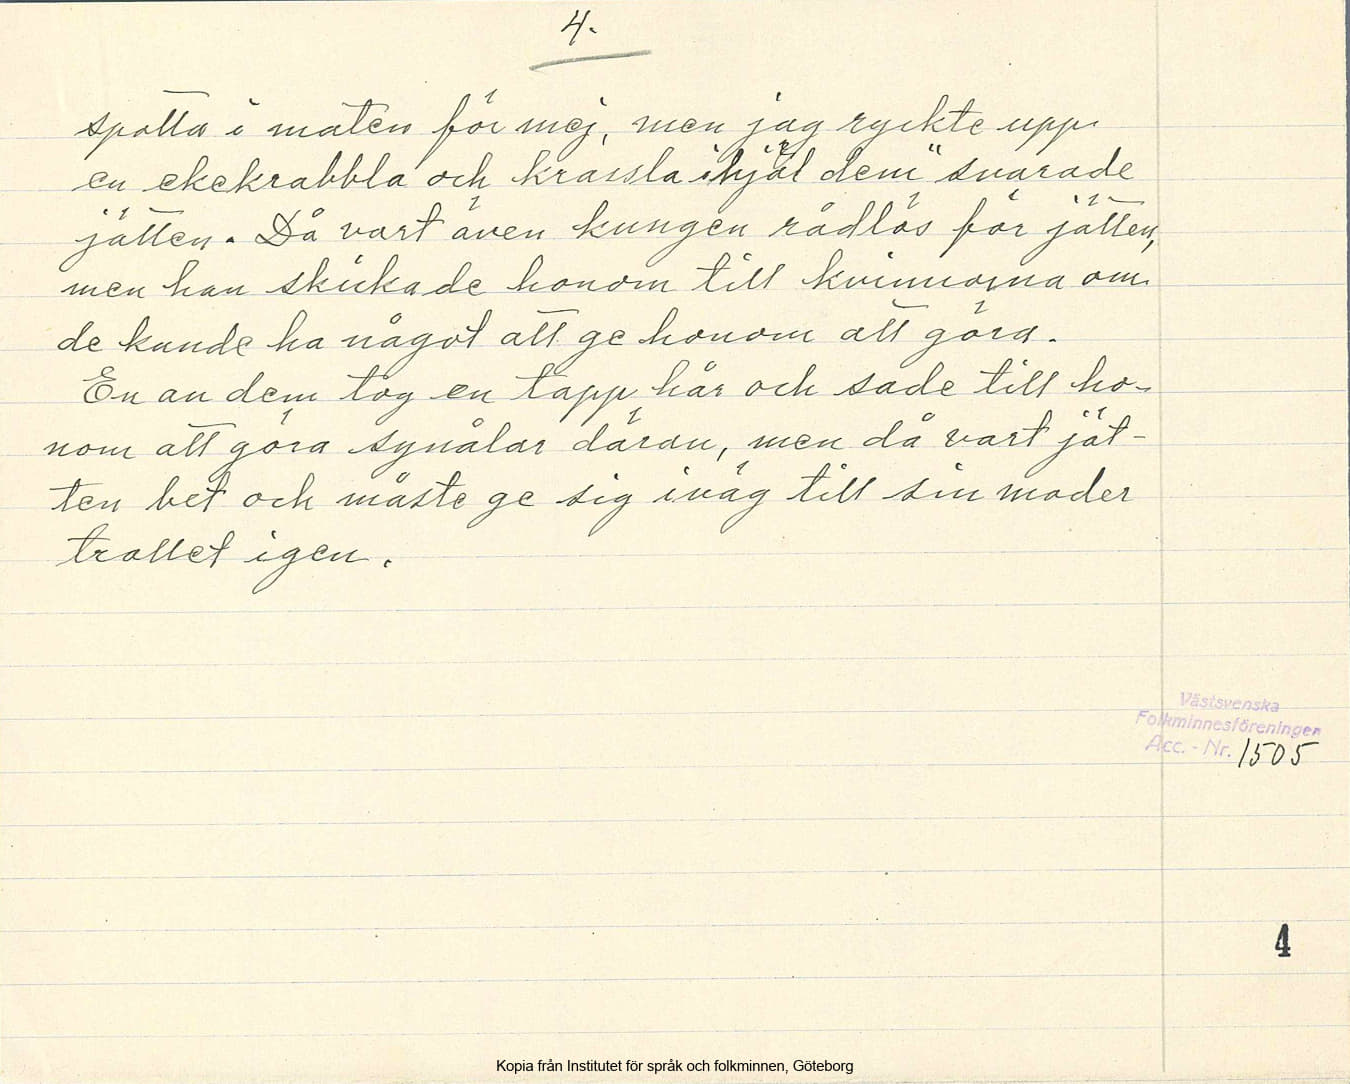 4.
spotta i maten för mej, men jag ryckte upp
en ekekrabbla och krassla ihjäl dem" svarade
jätten. Då vart även kungen rådlös för jätten,
men han skickade honom till kvinnorna om
de kunde ha något att ge honom att göra.
En av dem tog en tapp hår och sade till ho-
nom att göra synålar därav, men då vart jät-
ten bet och måste ge sig iväg till sin moder
trollet igen.
Västsvenska
Folkminnesföreningen
Acc. - Nr. 1505
4
Kopia från Institutet för språk och folkminnen, Göteborg